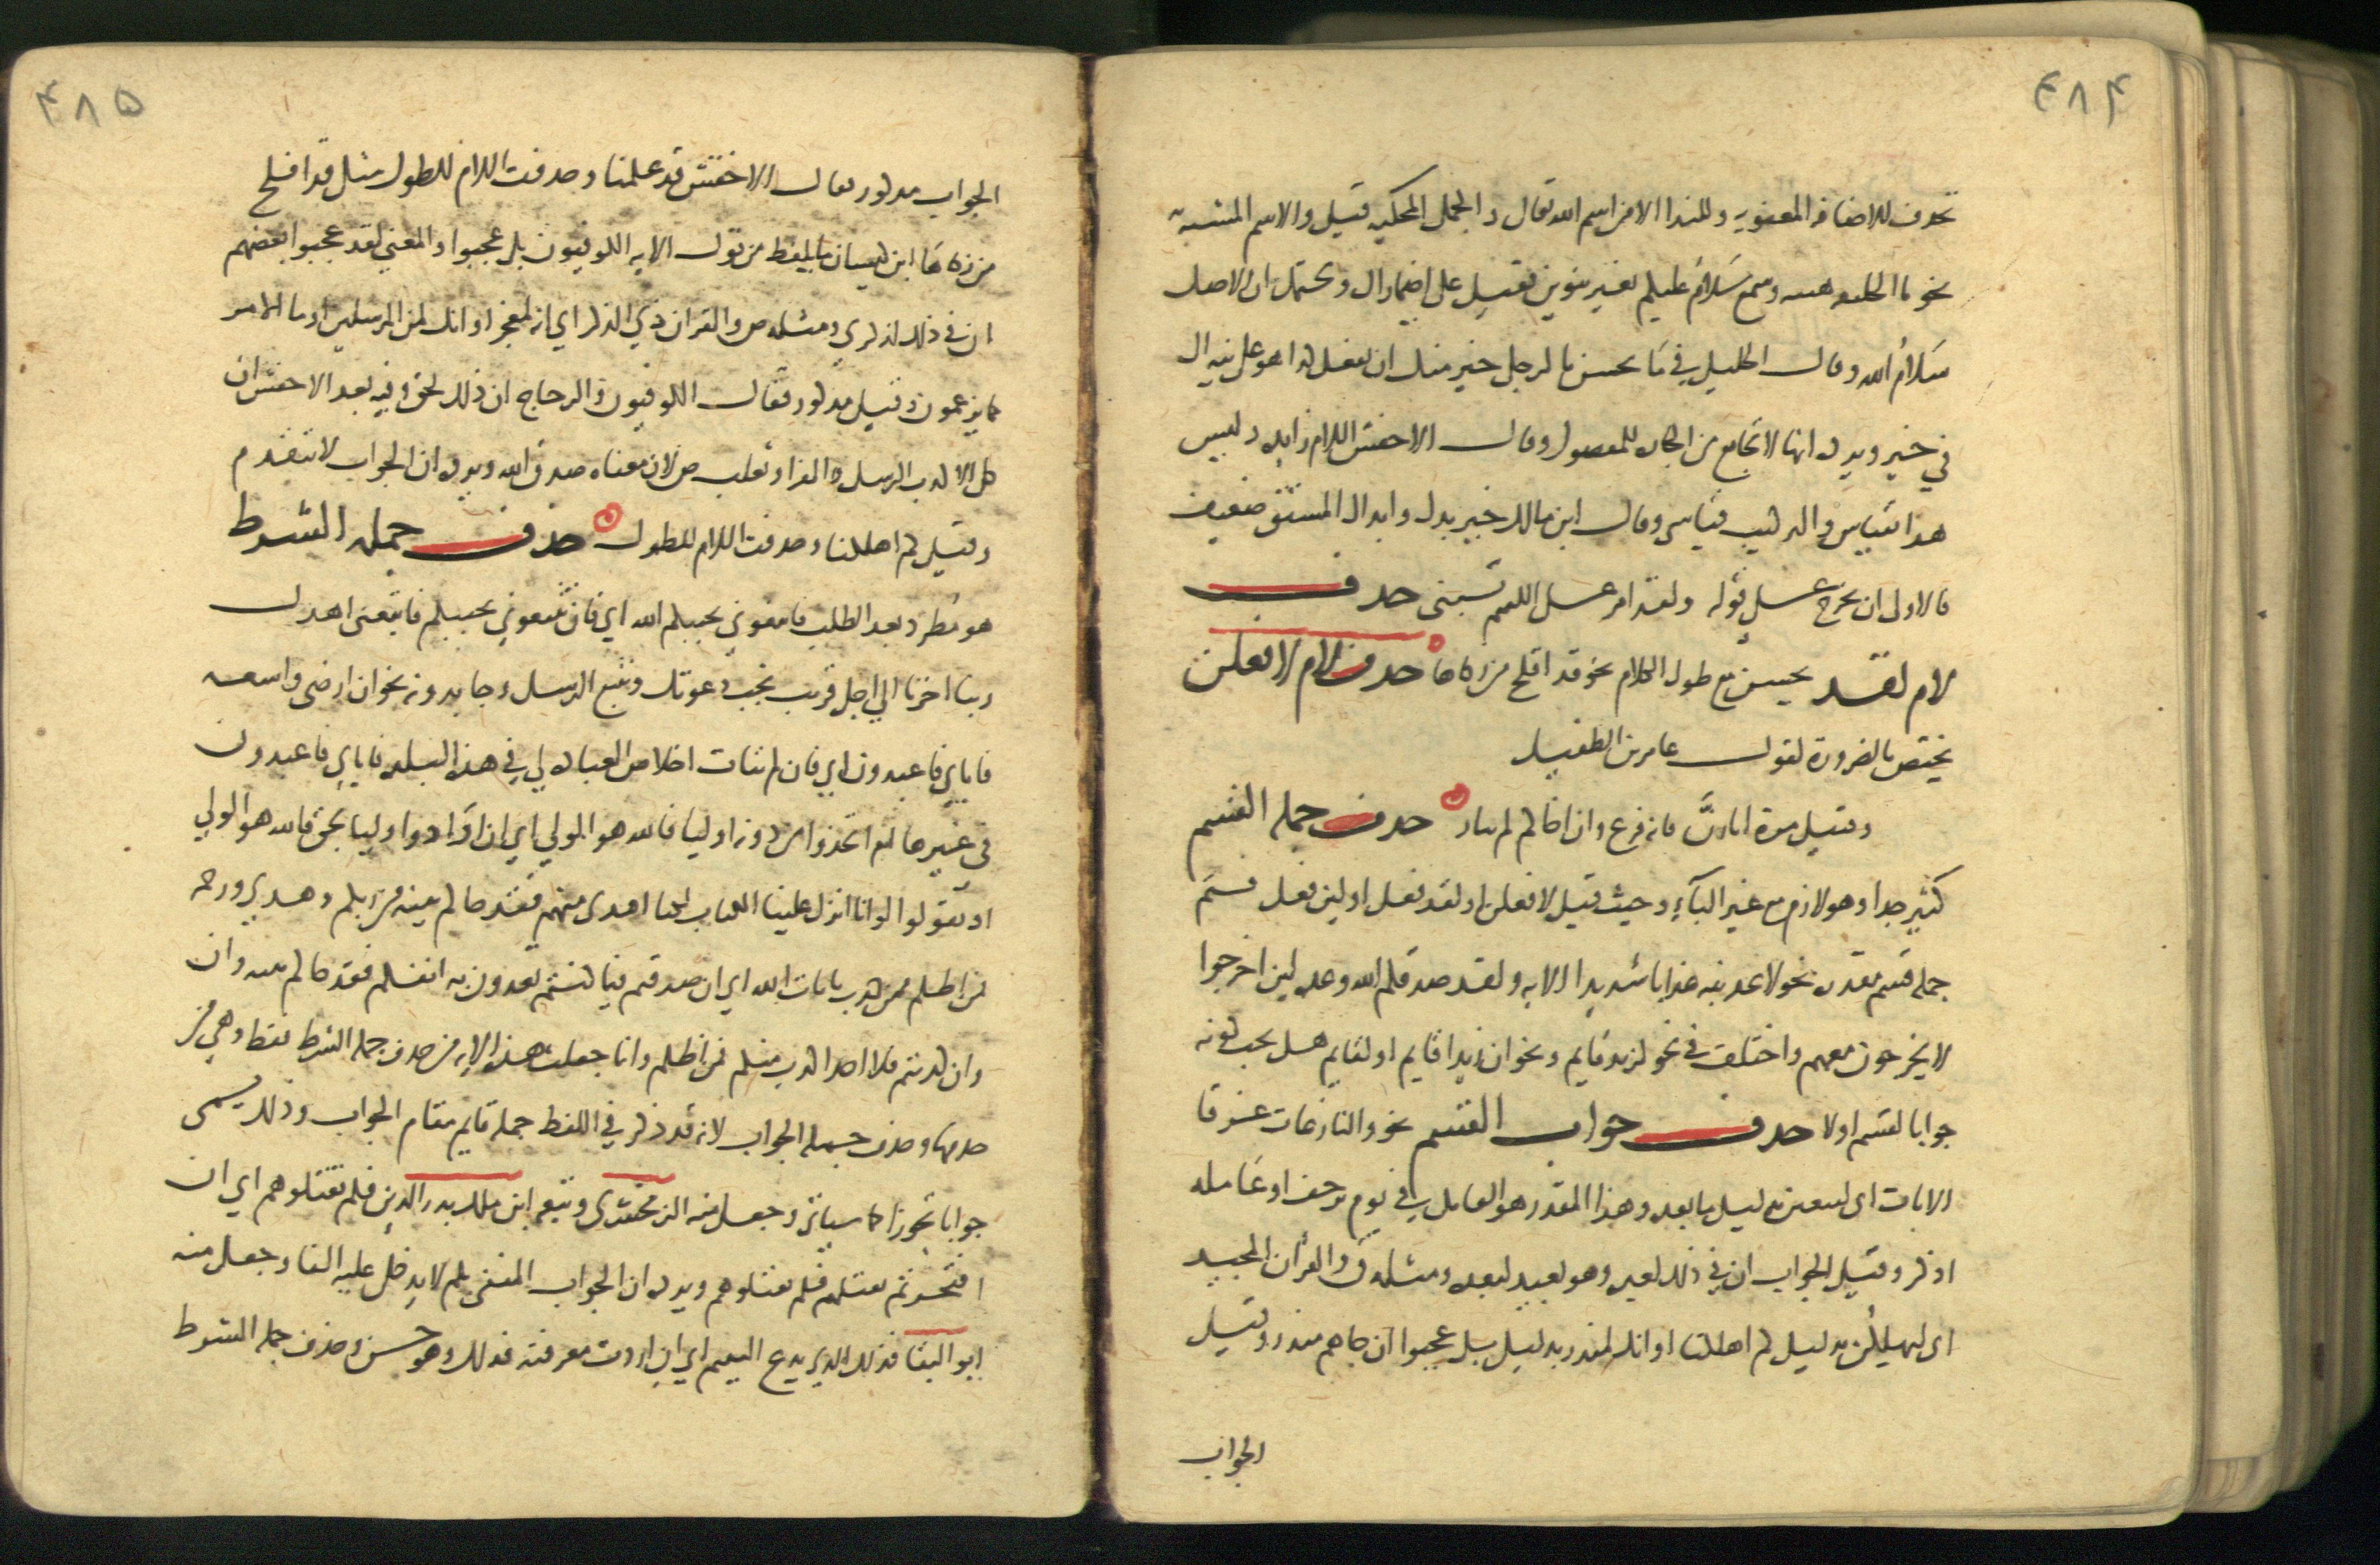 ٤٨٤
تحذف للاضافة المعنوية وللندا الا من اسم الله تعالى والجمل المحكية قيل والاسم المشبه
نحو يا الخليفه هيبه وسمع سَلامُ عليكم بغير تنوين فقيل على اضمار ال ويحتمل ان الاصل
سَلامُ الله وقال الخليل في مَا يحسن بالرجل خير منك ان يفعل كذا هو على نيه ال
في خير ويرده انها لا تجامع من الجاره للمفضول وقال الاخفش اللام زايده وليس
هذا بقياس والتركيب قياسي وقال ابن مالك خير بدل وابدال المشتق ضعيف
فالاولى ان يخرج على قوله ولقد امر على اللئيم يسبني حذف
لام لقد يحسن مع طول الكلام نحو قد افلح من زكاها حذف لام لافعلن
يختص بالضرورة كقول عامر بن الطفيل
وقتيل مرة اثارنَّ فانه فرع وان اخاكم لم يثار حذف جملة القسم
كثير جدا وهو لازم مع غير البآء وحيث قيل لافعلن او لقد فعل او لين فعل فثَم
جملة قسم مقدره نحو لاعذبنه عذابا شديدا الايه ولقد صدقكم الله وعده لين اخرجوا
لا يخرجون معهم واختلف في نحو لزيد قايم ونحو ان زيدا قايم او لقايم هل يجب كونه
جوابا لقسم اولا حذف جواب القسم نحو والنازعات غرقا
الايات اى لتبعثن بدليل ما بعده وهذا المقدر هو العامل في يوم ترجف او عَامله
اذكر وقيل الجواب ان في ذلك لعبره وهو بعيد لبعده ومثله ق والقرآن المجيد
اى ليهلكُن بدليل كم اهلكنا او انك لمنذر بدليل بل عجبوا ان جاهم منذر وقيل
الجواب
٤٨٥
الجواب مذكور فقال الاخفش قد علمنا وحذفت اللام للطول مثل قد افلح
من زكاهَا ابن كيسان ما يلفظ من قول الايه الكوفيون بل عجبوا والمعنى لقد عجبوا بعضهم
ان في ذلك لذكرى ومثله ص والقران ذي الذكر اي انه لمعجز او انك لمن المرسلين او ما الامر
كما يزعمون وقيل مذكور فقال الكوفيون والزجاج ان ذلك لحق وفيه بعد الاخفش ان
كل الا كذب الرسل الفرا وثعلب ص لان معناه صدق الله ويرده ان الجواب لا يتقدم
وقيل كم اهلكنا وحذفت اللام للطول حذف جملة الشرط
هو مُطرد بعد الطلب فاتبعوني يحببكم الله اي فان تتبعوني يحببكم فاتبعنى اهدك
ربنا اخرنا الي اجل قريب نجب دعوتك ونتبع الرسل وجا بدونه نحو ان ارضى واسعه
فاياي فاعبدون اي فان لم يتات اخلاص العباده لي في هذه البلده فاياي فاعبدون
في غيرها ام اتخذوا من دونه اوليا فالله هو الولي اي ان ارادوا اوليا بحق فالله هو الولي
او تقولوا لو انا انزل علينا الكتاب لكنا اهدى منهم فقد جاكم بينة من ربكم وهدي ورحمه
فمن اظلم ممن كذب بايات الله اي ان صدقتم فيما كنتم تعدون به انفسكم فقد جاكم بينه وان
وان كذبتم فلا احد اكذب منكم فمن اظلم وانما جعلت هذه الايه من حذف جملة الشرط فقط وهي من
حذفها وحذف جملة الجواب لانه قد ذكر في اللفظ جملة قايم مقام الجواب وذلك يسمى
جوابا تجوزا كما سياتى وجعل منه الزمخشرى وتبعه ابن مالك بدر الدين فلم تقتلوهم اي ان
افتخرتم بقتلهم فلم تقتلوهم ويرده ان الجواب المنفى بلم لا يدخل عليه الفا وجعل منه
ابو البقا فذلك الذي يدع اليتيم اي ان اردت معرفته فذلك وهو حسن وحذف جملة الشرط